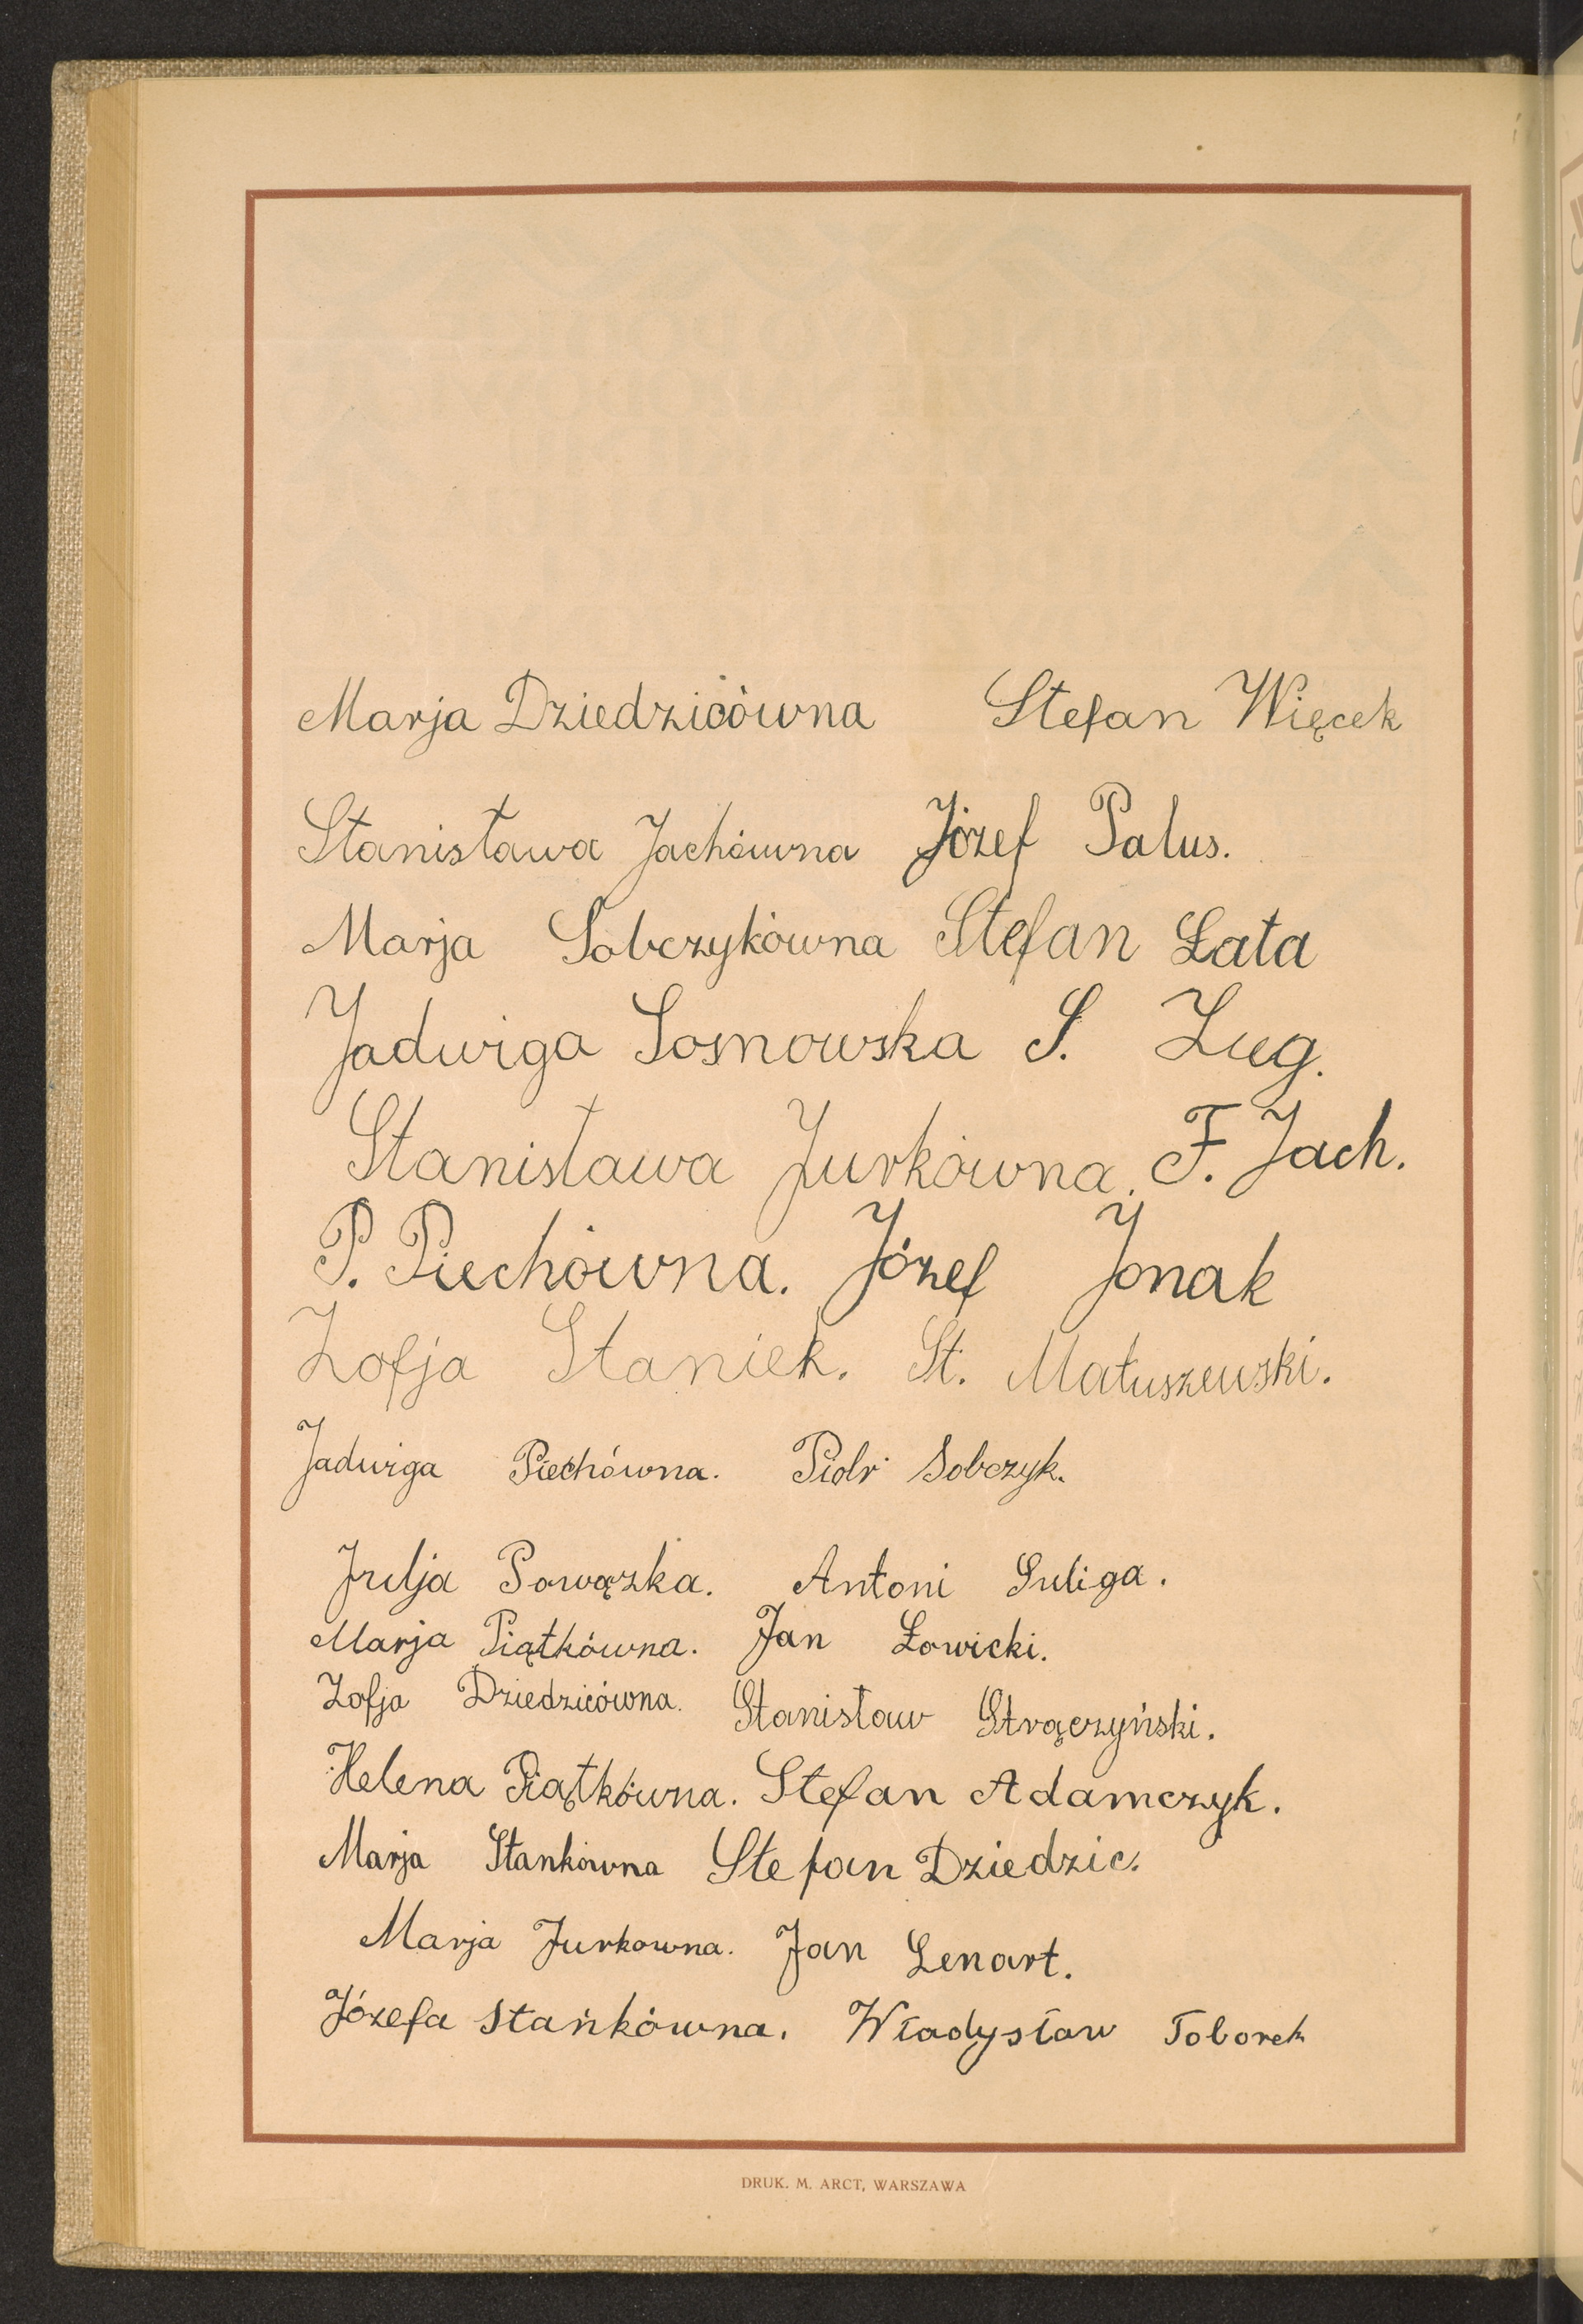 Marja Dziedzicówna Stefan Więcek
Stanisława Jachówna Józef Palus.
Marja Sobczykówna Stefan Łata
Jadwiga Sosnowska S. Ług.
Stanisława Jurkówna. F. Jach.
P. Piechówna. Józef Jonak
Zofja Staniek. St. Matuszewski.
Jadwiga Piechówna. Piotr Sobczyk.
Julja Powązka. Antoni Suliga.
Marja Piątkówna. Jan Łowicki.
Zofja Dziedzicówna. Stanisław Strączyński.
Helena Piątkówna. Stefan Adamczyk.
Marja Stankówna Stefan Dziedzic.
Marja Jurkowna. Jan Lenart.
Józefa Stańkówna. Władysław Toborek
DRUK. M. ARCT, WARSZAWA